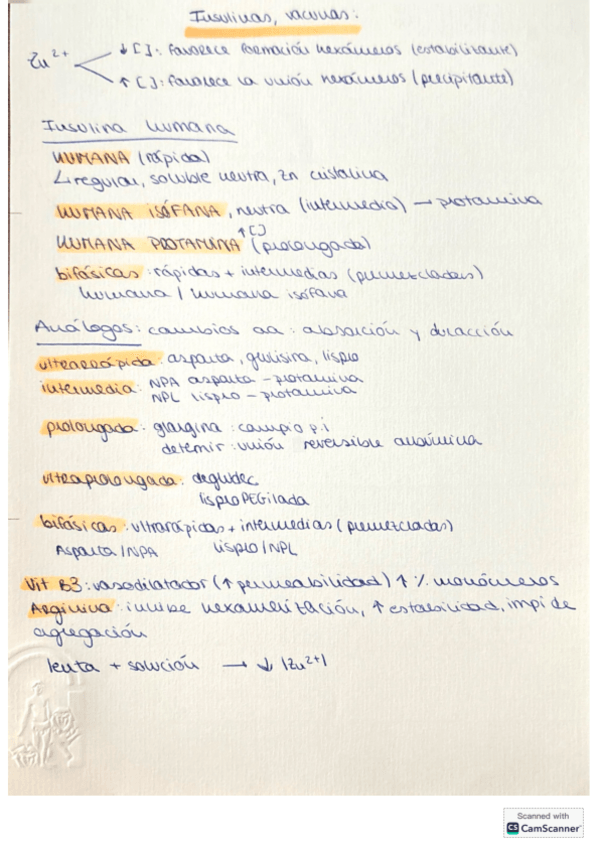 Insulinas, vacunas:
Zn²⁺
↓[]: favorece formación hexámeros (estabilizante)
↑[]: favorece la unión hexámeros (precipitante)
Insulina humana
HUMANA (rápida)
↳ regular, soluble neutra, Zn cristalina
HUMANA ISÓFANA, neutra (intermedia) → protamina
HUMANA PROTAMINA ↑[] (prolongada)
bifásicas: rápidas + intermedias (premezcladas)
humana / humana isófana
Análogos: cambios aa: absorción y duración
ultrarrápida: asparta, glulisina, lispro
intermedia: NPA asparta - protamina
NPL lispro - protamina
prolongada: glargina: campio p.i
detemir: unión reversible albúmina
ultraprolongada: degludec
lisproPEGilada
bifásicas: ultrarápidas + intermedias (premezcladas)
Asparta/NPA lispro/NPL
Vit B3: vasodilatador (↑ permeabilidad) ↑ % monómeros
Arginina: inhibe hexamerización, ↑ estabilidad, impide
agregación
lenta + solución → ↓ |Zn²⁺|
Scanned with
CS CamScanner